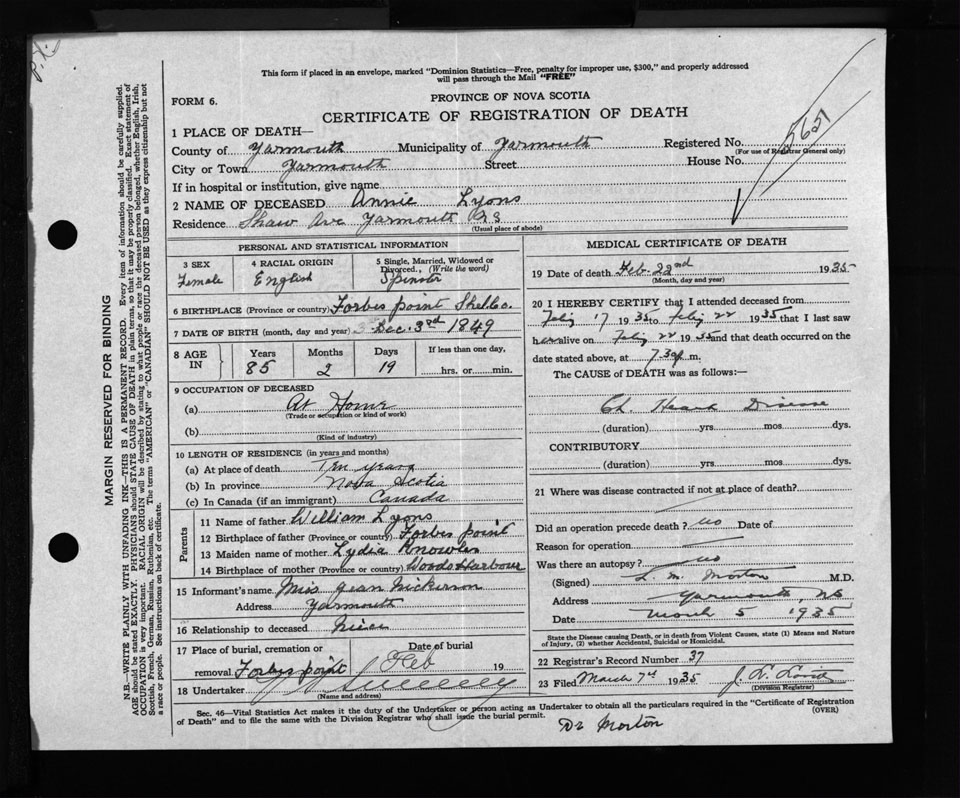 This form if placed in an envelope, marked "Dominion Statistics—Free, penalty for improper use, $300," and properly addressed
will pass through the Mail "FREE"
FORM 6.
PROVINCE OF NOVA SCOTIA
CERTIFICATE OF REGISTRATION OF DEATH
5627
1 PLACE OF DEATH—
County of Yarmouth Municipality of Yarmouth Registered No.
(For use of Registrar General only)
City or Town Yarmouth Street House No.
If in hospital or institution, give name
2 NAME OF DECEASED Annie Lyons
Residence Shaw Ave Yarmouth
(Usual place of abode)
PERSONAL AND STATISTICAL INFORMATION
3 SEX 4 RACIAL ORIGIN 5 Single, Married, Widowed or
Divorced, (Write the word)
Female English Spinster
6 BIRTHPLACE (Province or country) Forbes point Shelb Co.
7 DATE OF BIRTH (month, day and year) Dec. 3rd 1849
8 AGE IN Years Months Days If less than one day,
85 2 19 hrs. or min.
9 OCCUPATION OF DECEASED
(a) At Home
(Trade or occupation or kind of work)
(b)
(Kind of industry)
10 LENGTH OF RESIDENCE (in years and months)
(a) At place of death Ten years
(b) In province Nova Scotia
(c) In Canada (if an immigrant) Canada
Parents
11 Name of father William Lyons
12 Birthplace of father (Province or country) Forbes point
13 Maiden name of mother Lydia Knowles
14 Birthplace of mother (Province or country) Woods Harbour
15 Informant's name Miss Jean Nickerson
Address Yarmouth
16 Relationship to deceased Niece
17 Place of burial, cremation or Date of burial
removal Forbes point Feb 19
18 Undertaker
(Name and address)
MEDICAL CERTIFICATE OF DEATH
19 Date of death Feb. 22nd 1935
(Month, day and year)
20 I HEREBY CERTIFY that I attended deceased from
Feby 17 1935 to Feby 22 1935 that I last saw
her alive on Feby 22 1935 and that death occurred on the
date stated above, at 7.30 p. m.
The CAUSE of DEATH was as follows:—
Ch. Heart Disease
(duration) yrs. mos. dys.
CONTRIBUTORY
(duration) yrs. mos. dys.
21 Where was disease contracted if not at place of death?
Did an operation precede death? no Date of
Reason for operation
Was there an autopsy? no
(Signed) L. M. Morton M.D.
Address Yarmouth, NS
Date March 5 1935
State the Disease causing Death, or in death from Violent Causes, state (1) Means and Nature
of Injury, (2) whether Accidental, Suicidal or Homicidal.
22 Registrar's Record Number 37
23 Filed March 7th 1935
(Division Registrar)
Sec. 46—Vital Statistics Act makes it the duty of the Undertaker or person acting as Undertaker to obtain all the particulars required in the "Certificate of Registration
of Death" and to file the same with the Division Registrar who shall issue the burial permit.
(OVER)
Dr Morton
MARGIN RESERVED FOR BINDING
N.B.—WRITE PLAINLY WITH UNFADING INK—THIS IS A PERMANENT RECORD. Every item of information should be carefully supplied.
AGE should be stated EXACTLY. PHYSICIANS should STATE CAUSE OF DEATH in plain terms, so that it may be properly classified. Exact statement of
OCCUPATION is very important. RACIAL ORIGIN will be described by stating to what people or race the deceased person belonged, whether English, Irish,
Scottish, French, German, Russian, Ruthenian, etc. The terms "AMERICAN" or "CANADIAN" SHOULD NOT BE USED as they express citizenship but not
a race or people. See instructions on back of certificate.